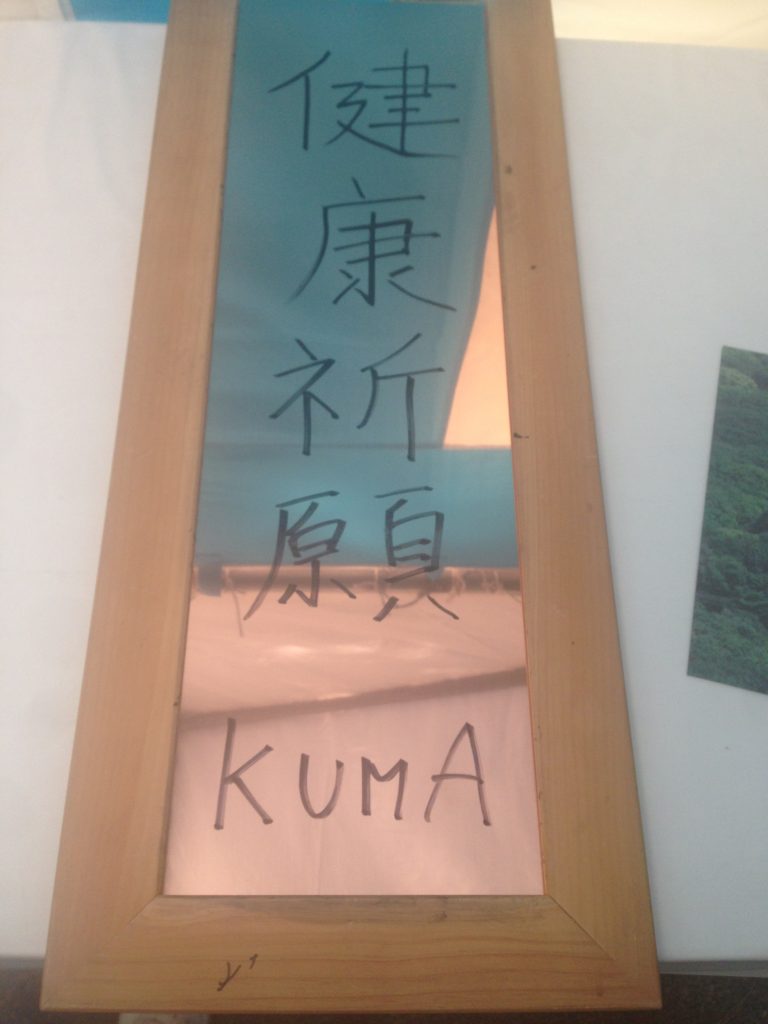 健康祈願
KUMA